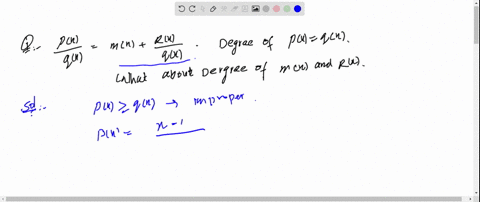 Q:- P(x)/q(x) = m(x) + R(x)/q(x) . Degree of P(x) = q(x).
What about Dergree of m(x) and R(x).
Sol:- P(x) ≥ q(x) → improper.
P(x) = x-1